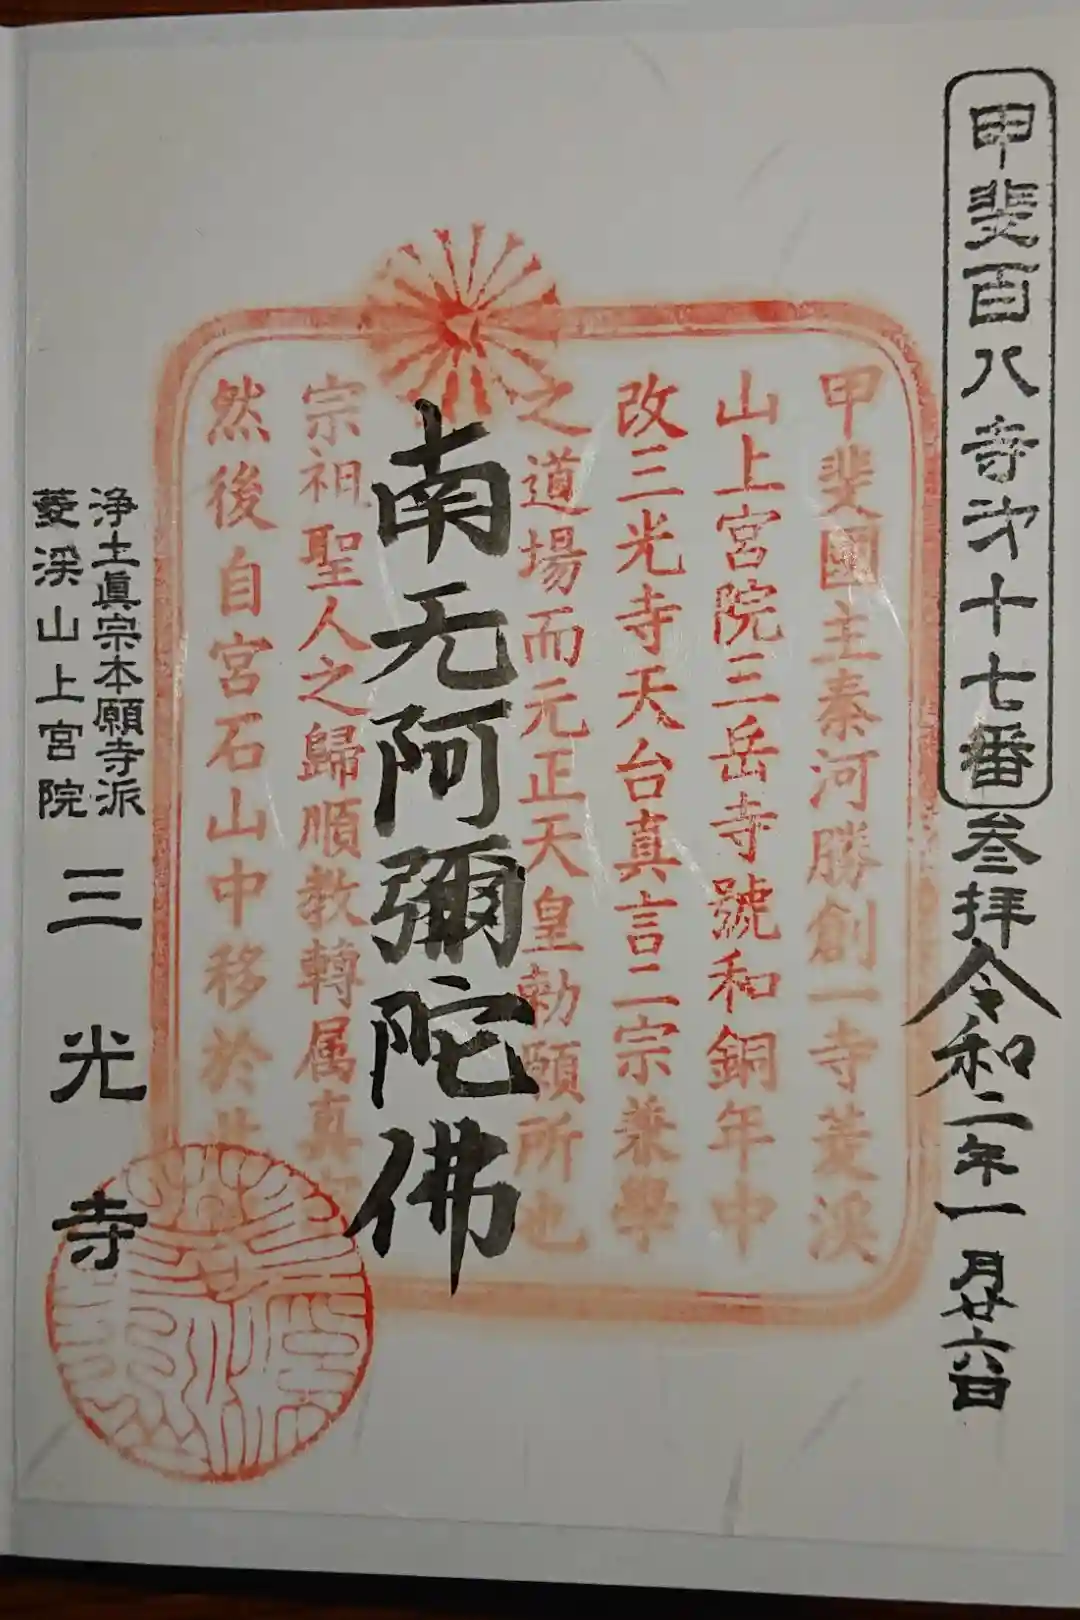 甲斐百八寺第十七番
叁拝
令和二年一月廿六日
甲斐國主秦河勝創一寺菱渓
山上宮院三岳寺號和銅年中
改三光寺天台真言二宗兼學
之道場而元正天皇勅願所也
南无阿彌陀佛
宗祖聖人之歸順教轉属真
然後自宮石山中移於此
浄土眞宗本願寺派
菱渓山上宮院
三光寺